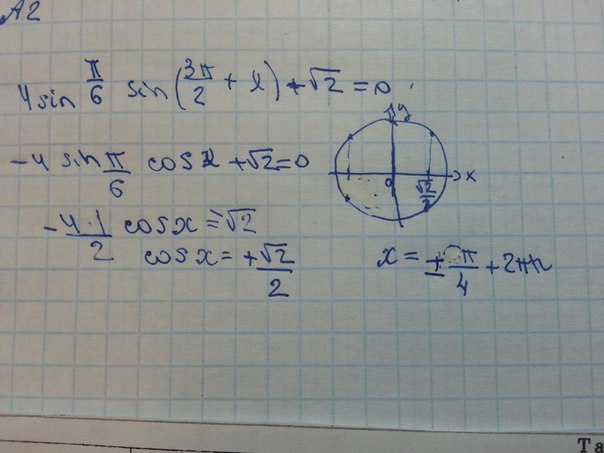 A2
4 sin π/6 sin(3π/2 + x) + √2 = 0
-4 sin π/6 cos x + √2 = 0
-4·1/2 cos x = -√2
cos x = +√2/2
y
0 √2/2 x
x = ± π/4 + 2πn
Та